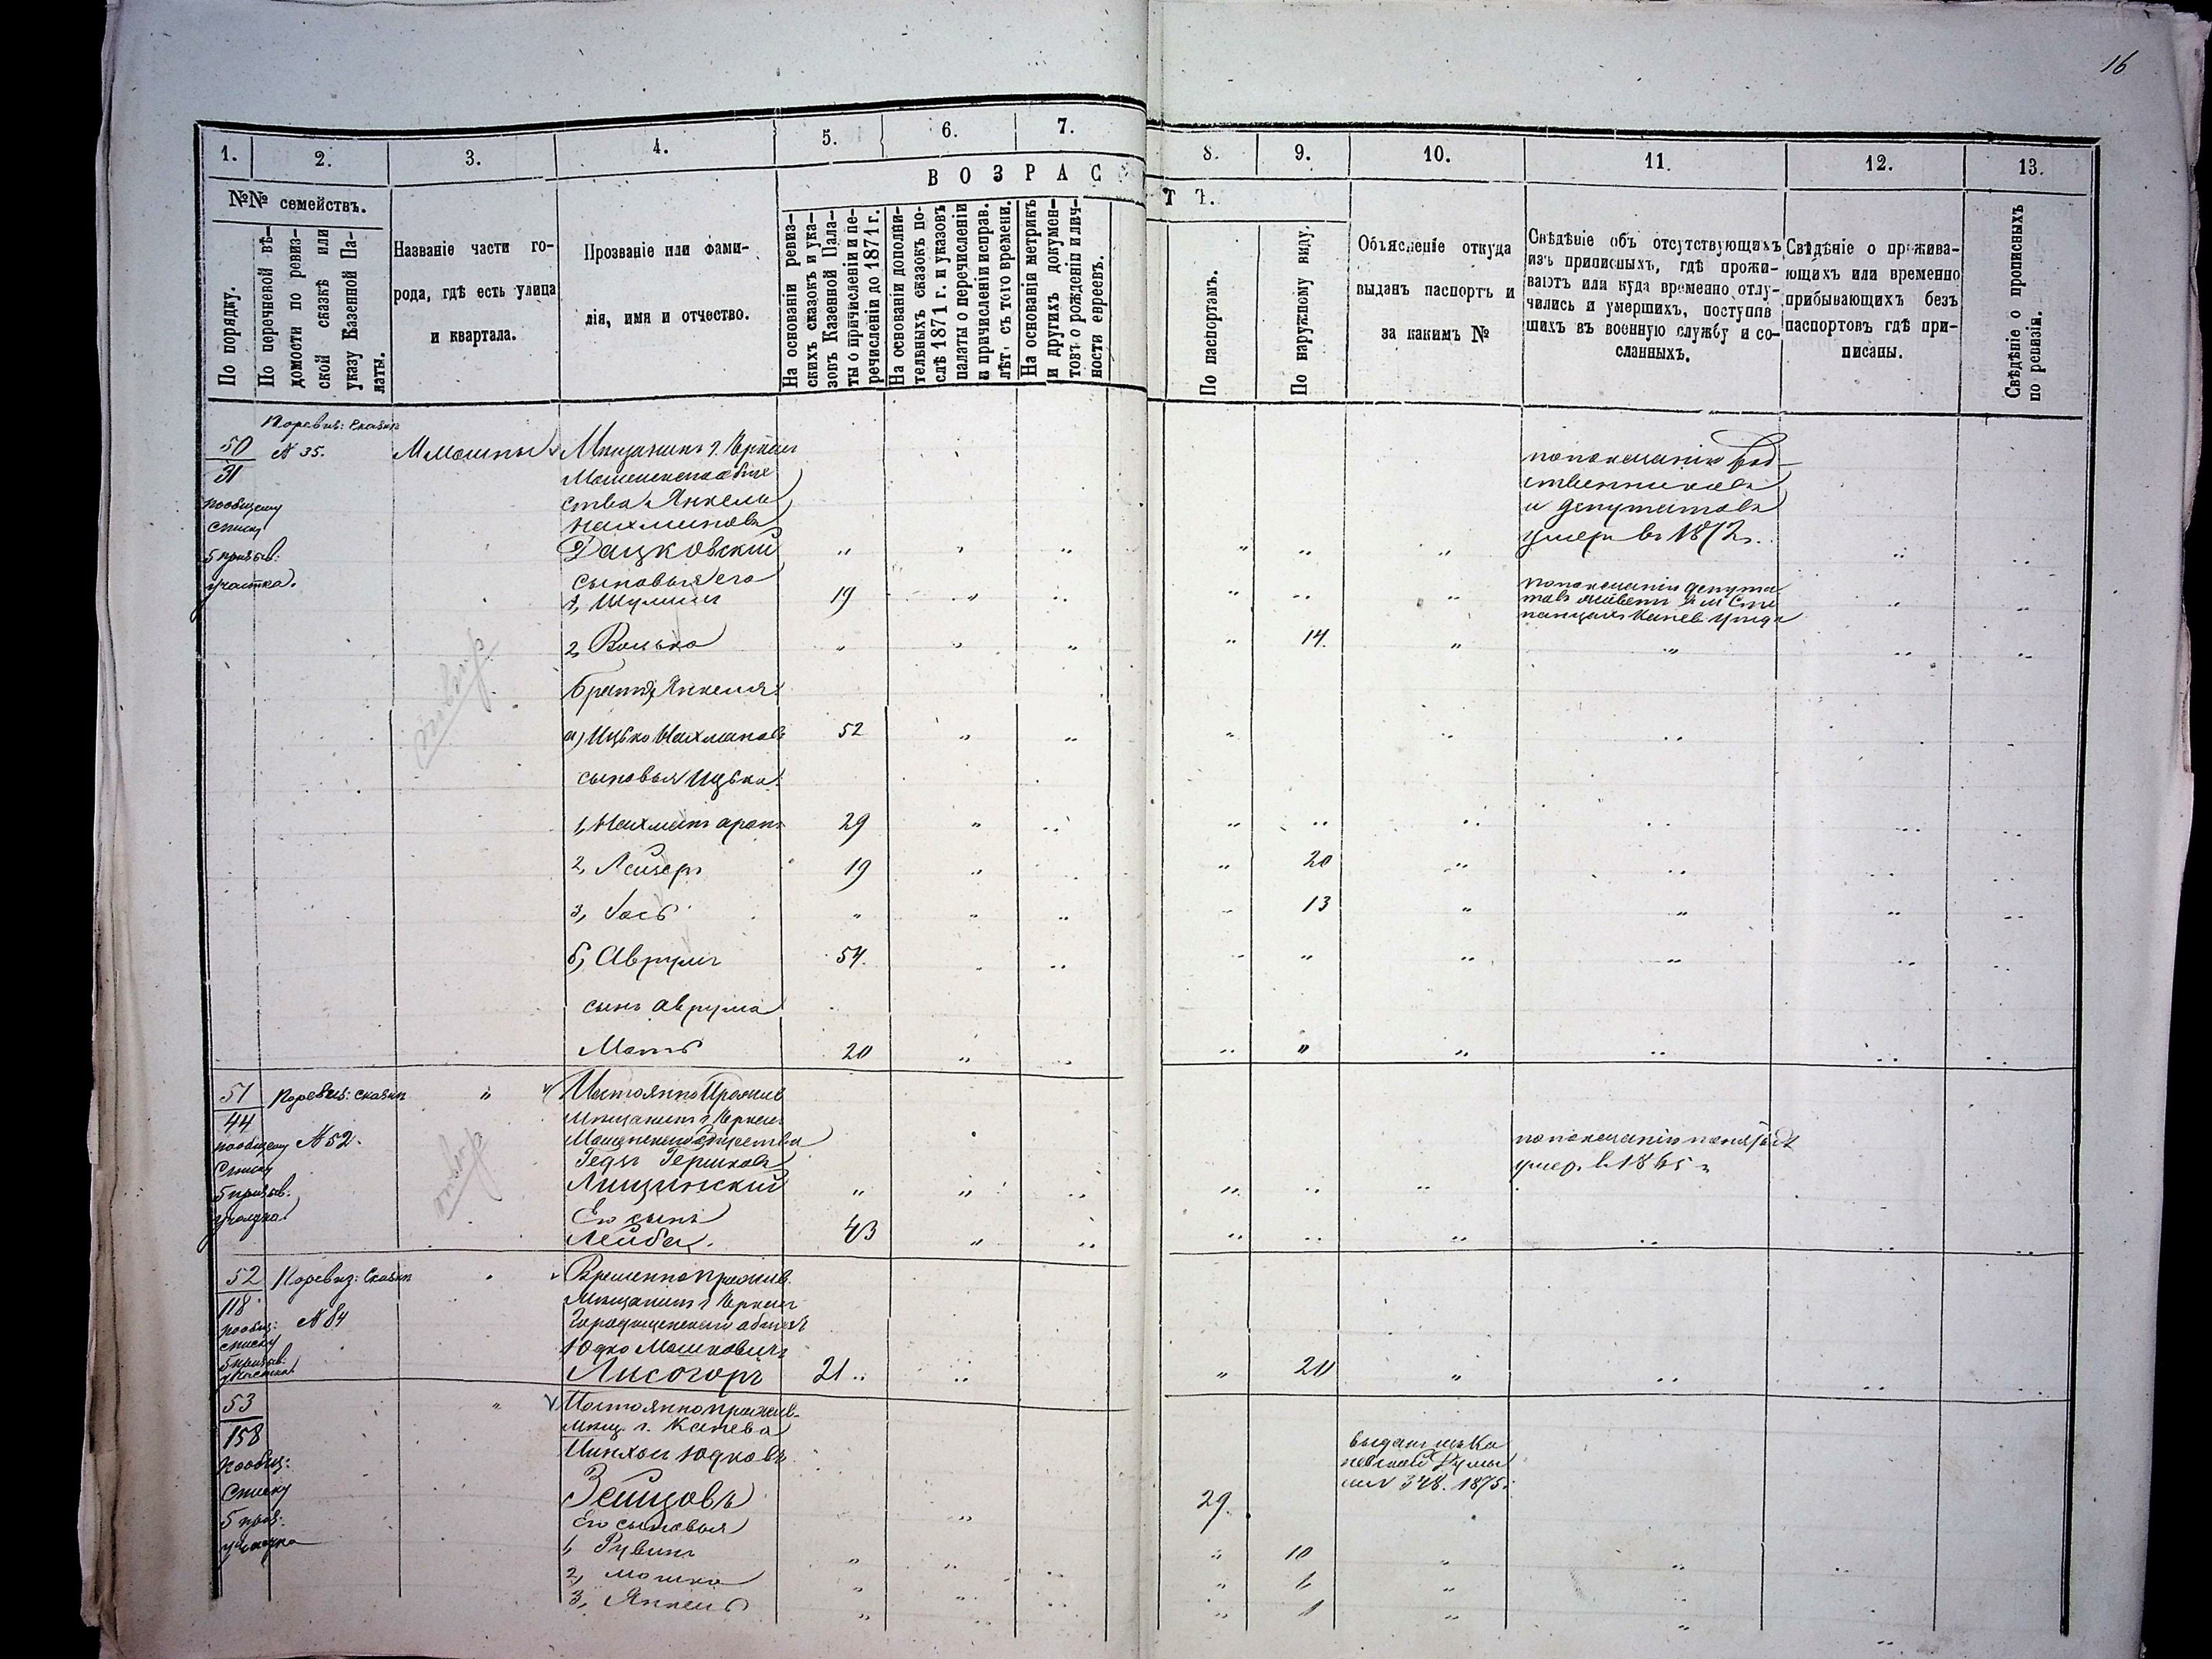 16
1.
2.
3.
4.
5.
6.
7.
8.
9.
10.
11.
12.
13.
№№ семействъ.
ВОЗРАС
ТЪ.
По порядку.
По перечневой вѣ-
домости по ревиз-
ской сказкѣ или
указу Казенной Па-
латы.
Названіе части го-
рода, гдѣ есть улица
и квартала.
Прозваніе или фами-
лія, имя и отчество.
На основаніи ревиз-
скихъ сказокъ и ука-
зовъ Казенной Пала-
ты о причисленіи и пе-
речисленіи до 1871 г.
На основаніи дополни-
тельныхъ сказокъ по-
слѣ 1871 г. и указовъ
палаты о перечисленіи
и причисленіи исправ.
лѣт. съ того времени.
На основаніи метрикъ
и другихъ докумен-
товъ о рожденіи и лич-
ности евреевъ.
По паспортамъ.
По наружному виду.
Объясненіе откуда
выданъ паспортъ и
за какимъ №
Свѣдѣніе объ отсутствующихъ
изъ приписныхъ, гдѣ прожи-
ваютъ или куда временно отлу-
чились и умершихъ, поступив
шихъ въ военную службу и со-
сланныхъ.
Свѣдѣніе о прожива-
ющихъ или временно
прибывающихъ безъ
паспортовъ гдѣ при-
писаны.
Свѣдѣніе о прописныхъ
по ревизіи.
50
31
пообщему
списку
5 призыв:
участка.
Поревиз: Сказкѣ
N 35.
М Мошны
Мѣщанинъ г. Черкасъ
Мошенскаго обще
ства Янкель
Нахмановъ
Дацковскій
попоказанію род-
ственниковъ
и депутатовъ
умеръ въ 1872г.
Сыновья его
1, Шулимъ 19
попоказанію депута
товъ живетъ в м Сте
панцахъ Канев. уѣзда
2, Волько 14.
братья Янкеля:
а) Ицько Нахмановъ 52
сыновья Ицька:
1, Нахманъ аронъ 29
2, Лейзеръ 19 20
3, Іось 13
б, Аврумъ 54.
сынъ аврума
Мотъ 20
51
44
пообщему
списку
5 призыв.
участка
Поревиз: сказкѣ
N 52.
Постоянно Прожив
мѣщанинъ г. Черкасъ
Мошенскаго общества
Гершковъ
Лищинскій
попоказанію
умер. в 1865 г
Его сынъ
Лейба. 43
52
118
пообщ:
списку
5 призыв.
участка
Поревиз: Сказкѣ
N 84
Временно прожив.
Мѣщанинъ г Черкасъ
Городищенскаго общест
Юдко Мошковичъ
Лисогоръ 21 20
53
158
Пообщ:
Списку
5 приз:
участка
Постоянно прожив.
мѣщ. г. Канева
Пинхос Юдковъ
Зейцовъ 29.
выданъ изъ Ка
невской Думы
за N 348. 1875г
Его сыновья
1, Рувинъ 10
2, Мошко 6
3, Янкель 1